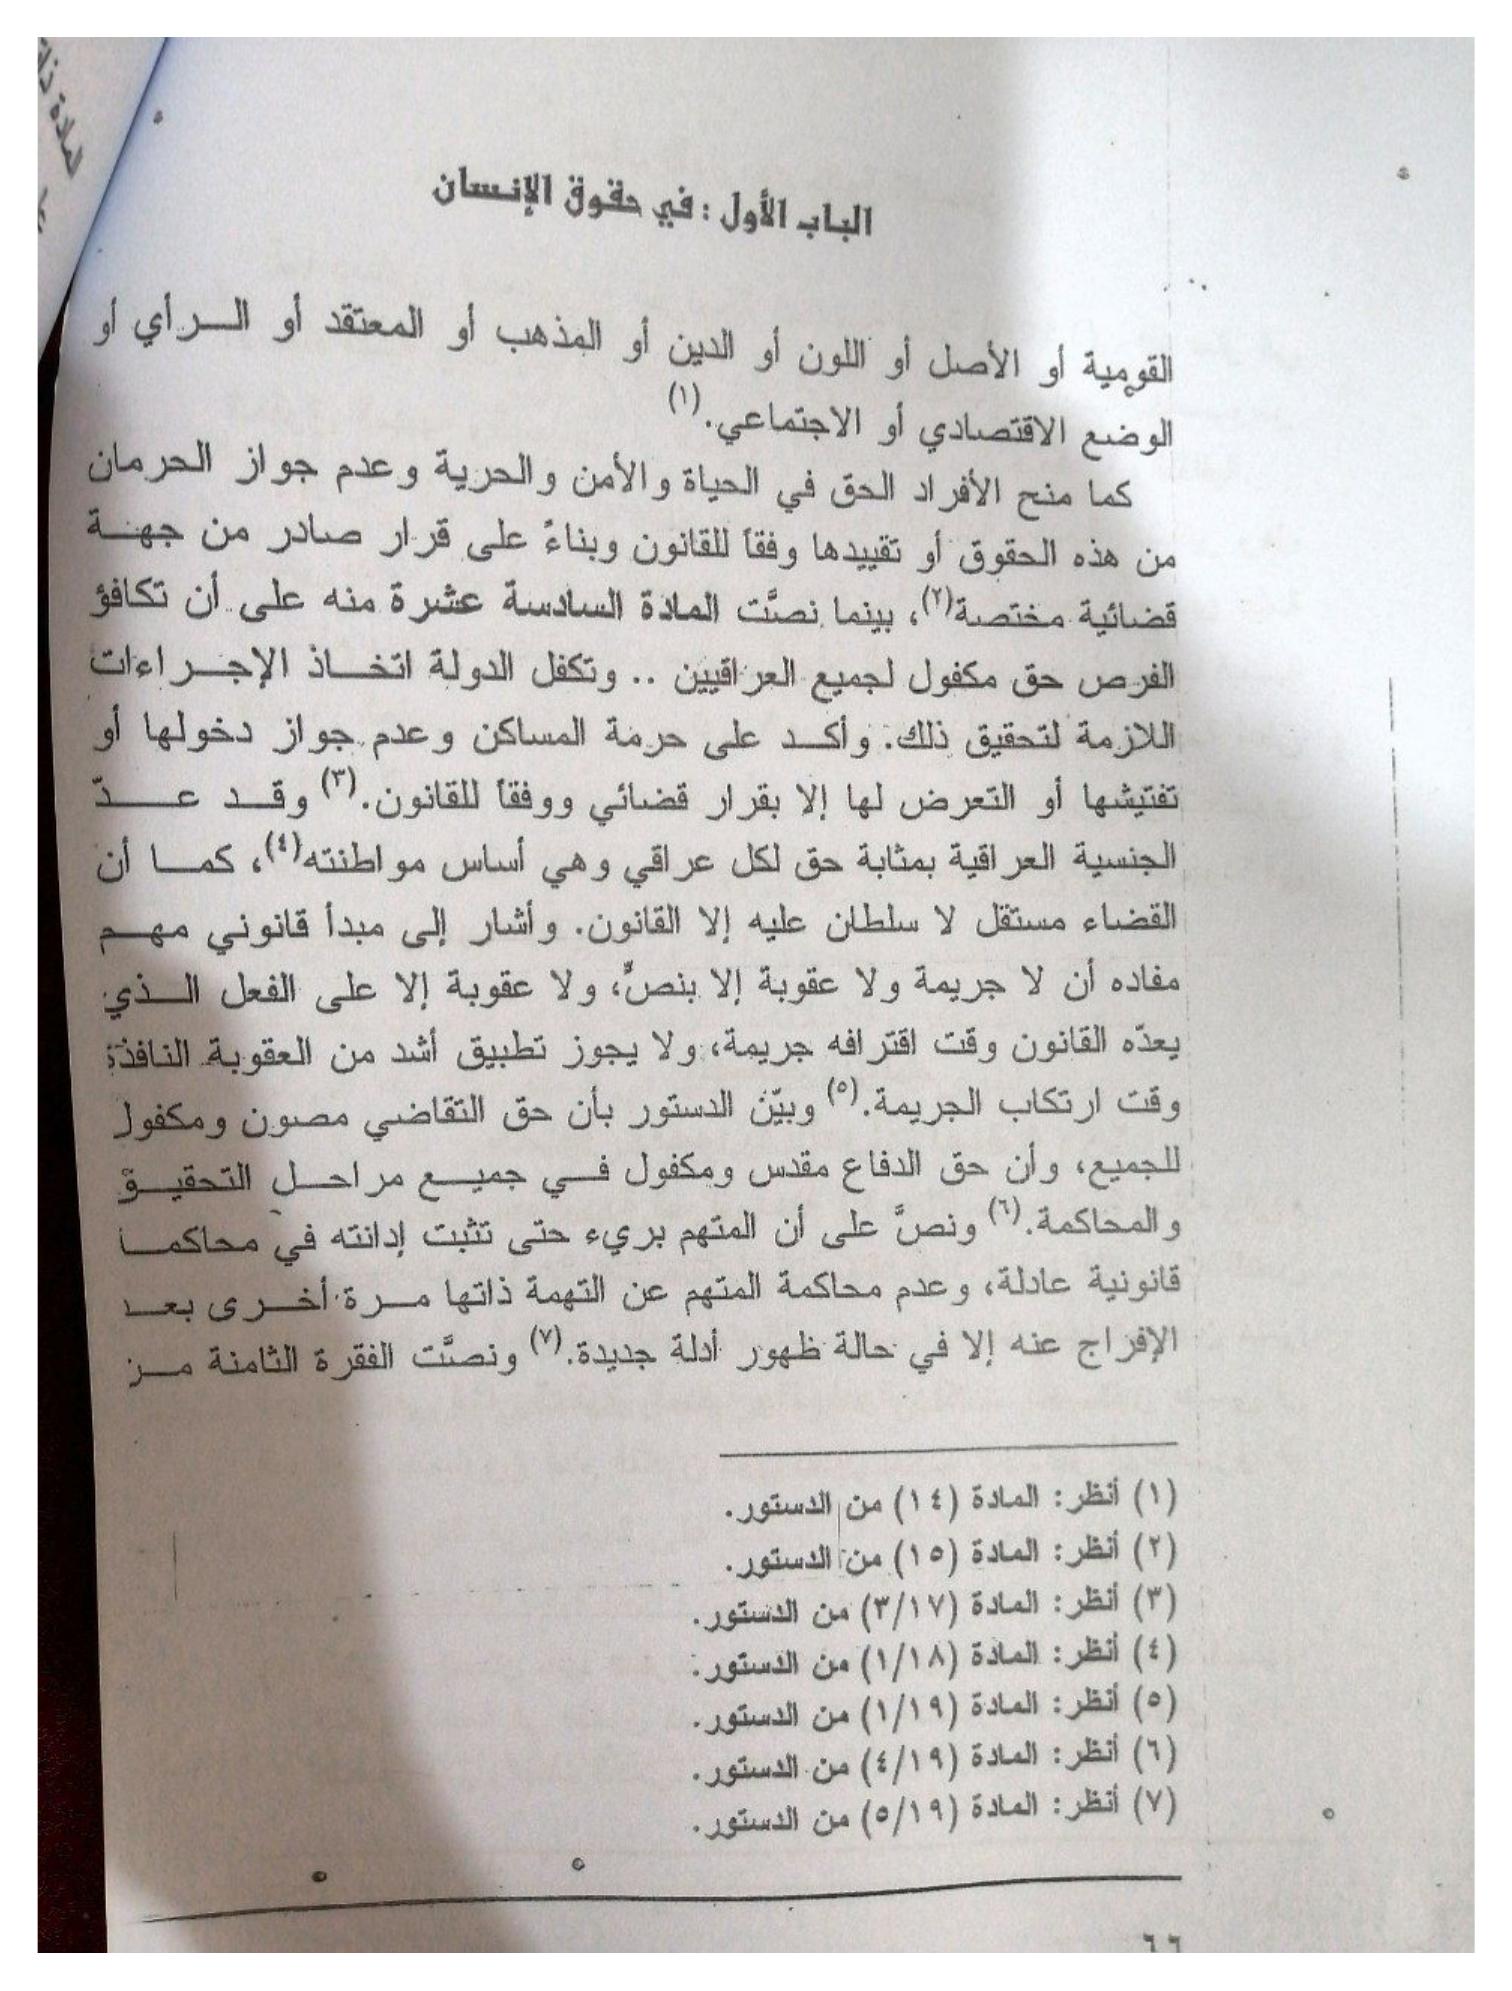 الباب الأول : في حقوق الإنسان
القومية أو الأصل أو اللون أو الدين أو المذهب أو المعتقد أو الـرأي أو
الوضع الاقتصادي أو الاجتماعي.(١)
كما منح الأفراد الحق في الحياة والأمن والحرية وعدم جواز الحرمان
من هذه الحقوق أو تقييدها وفقاً للقانون وبناءً على قرار صادر من جهـة
قضائية مختصة(٢)، بينما نصَّت المادة السادسة عشرة منه على أن تكافؤ
الفرص حق مكفول لجميع العراقيين .. وتكفل الدولة اتخـاذ الإجـراءات
اللازمة لتحقيق ذلك. وأكـد على حرمة المساكن وعدم جواز دخولها أو
تفتيشها أو التعرض لها إلا بقرار قضائي ووفقاً للقانون.(٣) وقـد عـدّ
الجنسية العراقية بمثابة حق لكل عراقي وهي أساس مواطنته(٤)، كمـا أن
القضاء مستقل لا سلطان عليه إلا القانون. وأشار إلى مبدأ قانوني مهـم
مفاده أن لا جريمة ولا عقوبة إلا بنصٍّ، ولا عقوبة إلا على الفعل الـذي
يعدّه القانون وقت اقترافه جريمة، ولا يجوز تطبيق أشد من العقوبة النافذة
وقت ارتكاب الجريمة.(٥) وبيّن الدستور بأن حق التقاضي مصون ومكفول
للجميع، وأن حق الدفاع مقدس ومكفول فـي جميـع مراحـل التحقيـق
والمحاكمة.(٦) ونصَّ على أن المتهم بريء حتى تثبت إدانته في محاكمـا
قانونية عادلة، وعدم محاكمة المتهم عن التهمة ذاتها مـرة أخـرى بعـد
الإفراج عنه إلا في حالة ظهور أدلة جديدة.(٧) ونصَّت الفقرة الثامنة مـن
(١) أنظر: المادة (١٤) من الدستور.
(٢) أنظر: المادة (١٥) من الدستور.
(٣) أنظر: المادة (٣/١٧) من الدستور.
(٤) أنظر: المادة (١/١٨) من الدستور.
(٥) أنظر: المادة (١/١٩) من الدستور.
(٦) أنظر: المادة (٤/١٩) من الدستور.
(٧) أنظر: المادة (٥/١٩) من الدستور.
٦٦